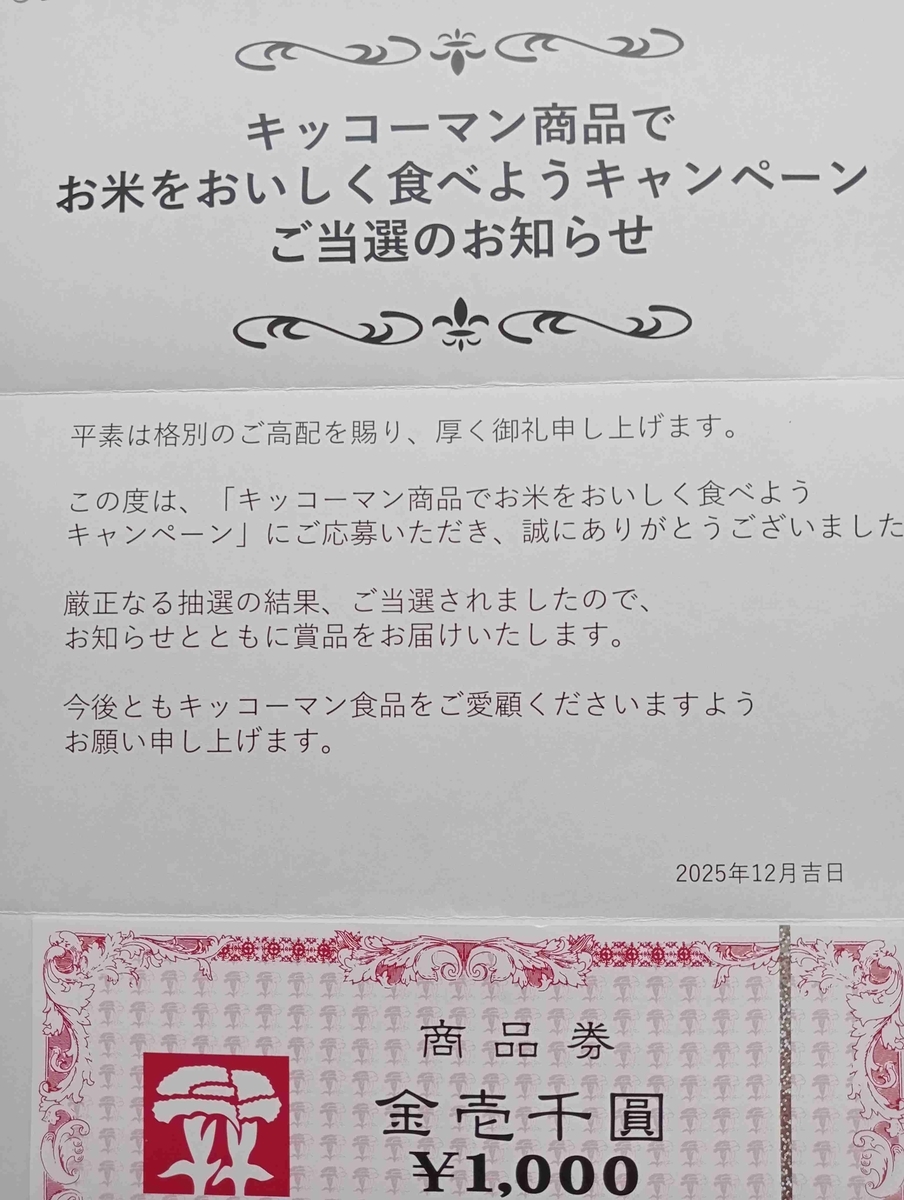 キッコーマン商品で
お米をおいしく食べようキャンペーン
ご当選のお知らせ
平素は格別のご高配を賜り、厚く御礼申し上げます。
この度は、「キッコーマン商品でお米をおいしく食べよう
キャンペーン」にご応募いただき、誠にありがとうございました
厳正なる抽選の結果、ご当選されましたので、
お知らせとともに賞品をお届けいたします。
今後ともキッコーマン食品をご愛顧くださいますよう
お願い申し上げます。
2025年12月吉日
商品券
金壱千圓
¥1,000